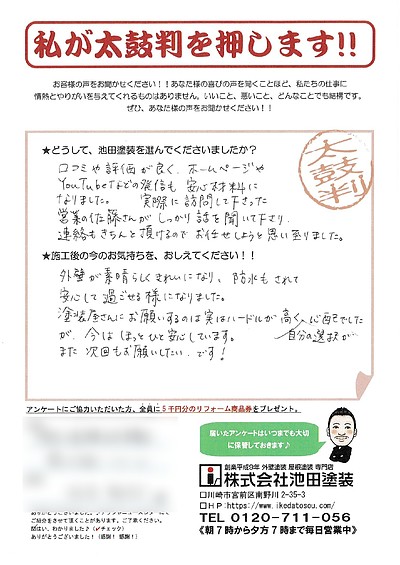 私が太鼓判を押します!!
お客様の声をお聞かせください!!あなた様の喜びの声を聞くことほど、私たちの仕事に
情熱とやりがいを与えてくれるものはありません。いいこと、悪いこと、どんなことでも結構です。
ぜひ、あなた様の声をお聞かせください!!
★どうして、池田塗装を選んでくださいましたか?
太鼓判
口コミや評価が良く、ホームページや
YouTubeなどの発信も安心材料に
なりました。 実際に訪問して下さった
営業の佐藤さんがしっかり話を聞いて下さり、
連絡もきちんと頂けるのでお任せしようと思い至りました。
★施工後の今のお気持ちを、おしえてください!!
外壁が素晴らしくきれいになり、防水もされて
安心して過ごせる様になりました。
塗装屋さんにお願いするのは実はハードルが高く
が、今はほっとひと安心しています。 自分の選択が
また次回もお願いしたい、です!
アンケートにご協力いただいた方、全員に5千円分のリフォーム商品券をプレゼント。
届いたアンケートはいつまでも大切
に保管しておきます♪
創業平成9年 外壁塗装 屋根塗装 専門店
株式会社池田塗装
口川崎市宮前区南野川2-35-3
口HP:https://www.ikedatosou.com/
TEL 0120-711-056
《朝7時から夕方7時まで毎日営業中》
ご紹介をさせて頂くことがあります。ご了承ください。
ありがとうございました!(感謝!感謝!)